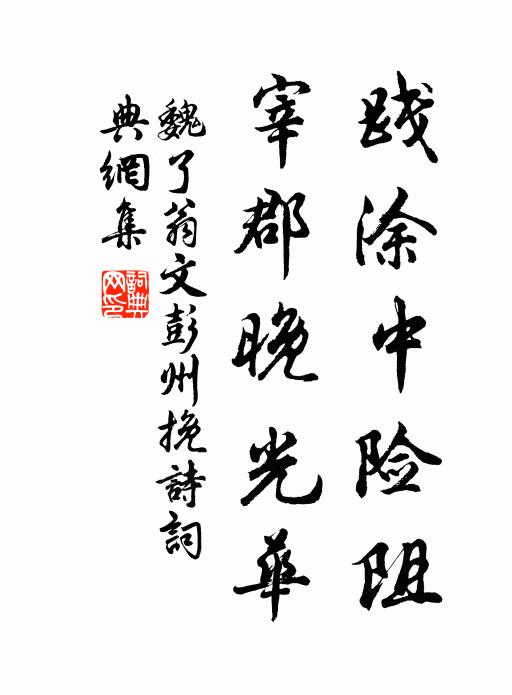 践涂中险阻
宰郡晚光華
魏了翁文彭州挽詩詞
典網集
詞典
网印